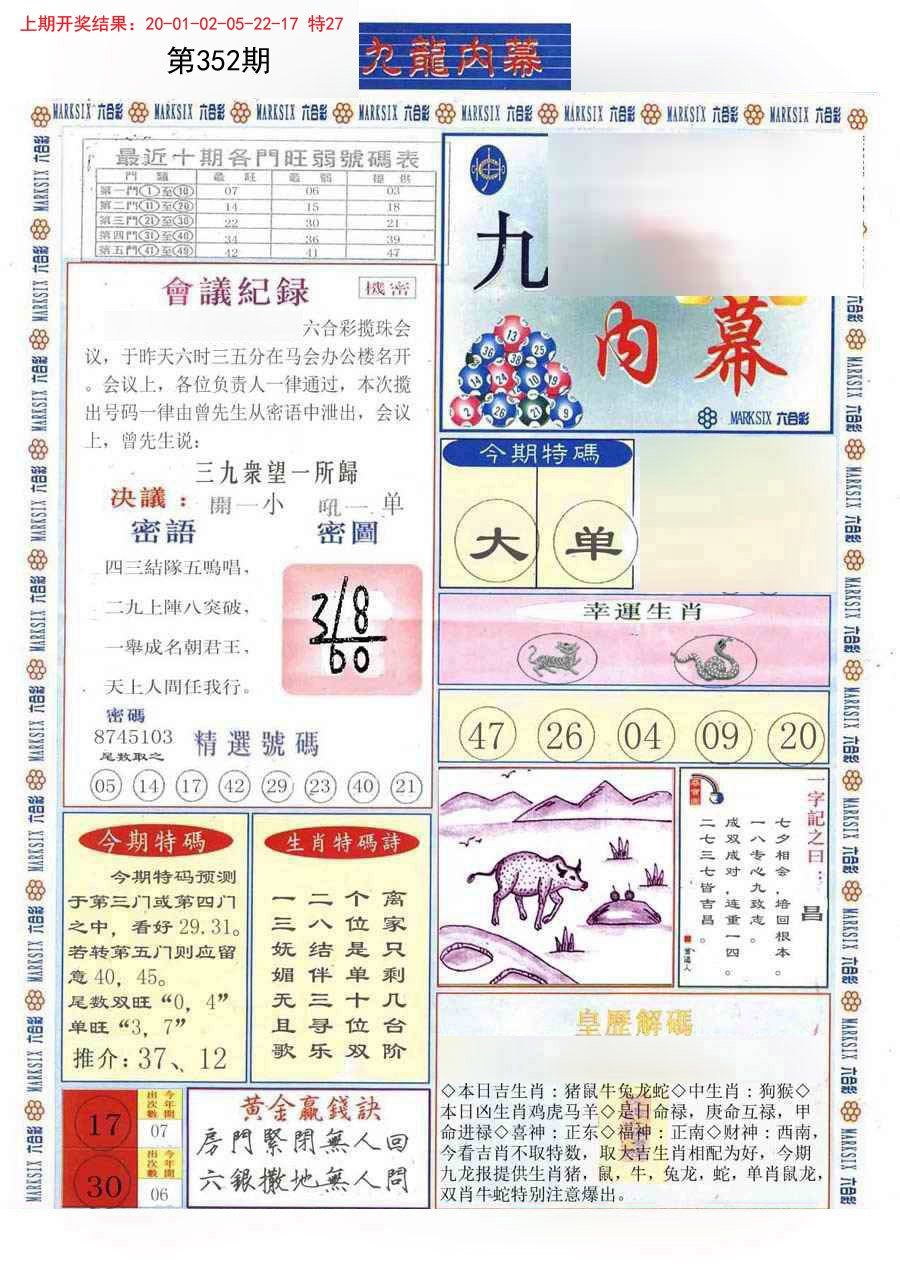 上期开奖结果：20-01-02-05-22-17 特27
第352期
九龍内幕
MARKSIX 六合彩 MARKSIX 六合彩 MARKSIX 六合彩 MARKSIX 六合彩 MARKSIX 六合彩 MARKSIX 六合彩 MARKSIX 六合彩 MARKSIX 六合彩
最近十期各門旺弱號碼表
門類 最旺 最弱 提供
第一門①至⑩ 07 06 03
第二門⑪至⑳ 14 15 18
第三門㉑至㉚ 22 30 21
第四門㉛至㊵ 34 36 39
第五門㊶至㊾ 42 41 47
會議紀録
機密
六合彩揽珠会
议，于昨天六时三五分在马会办公楼名开
。会议上，各位负责人一律通过，本次揽
出号码一律由曾先生从密语中泄出，会议
上，曾先生说：
三九衆望一所歸
决議：開一小 吼一单
密語
密圖
四三結隊五鳴唱，
二九上陣八突破，
一舉成名朝君王，
天上人間任我行。
3/8
60
密碼
8745103
尾数取之
精選號碼
05 14 17 42 29 23 40 21
九
内幕
13
36 38 25
14 24 10 19
2 26 21 9
MARKSIX 六合彩
今期特碼
大 单
幸運生肖
47 26 04 09 20
一字記之曰：昌
七夕相会，培回根本。
一八专心九致志。
成双成对，连重一四。
二七三七皆吉昌。
曾道人
今期特碼
今期特码预测
于第三门或第四门
之中，看好29.31。
若转第五门则应留
意40，45。
尾数双旺“0，4”
单旺“3，7”
推介：37、12
生肖特碼詩
离家只剩几台阶
个位是单十位双
二八结伴三寻乐
一三妩媚无且歌
17
今年開出次數
07
30
今年開出次數
06
黄金赢錢訣
房門緊閉無人回
六銀撒地無人問
皇歷解碼
◇本日吉生肖：猪鼠牛兔龙蛇◇中生肖：狗猴◇
本日凶生肖鸡虎马羊◇是日命禄，庚命互禄，甲
命进禄◇喜神：正东◇福神：正南◇财神：西南，
今看吉肖不取特数，取大吉生肖相配为好，今期
九龙报提供生肖猪，鼠，牛，兔龙，蛇，单肖鼠龙，
双肖牛蛇特别注意爆出。